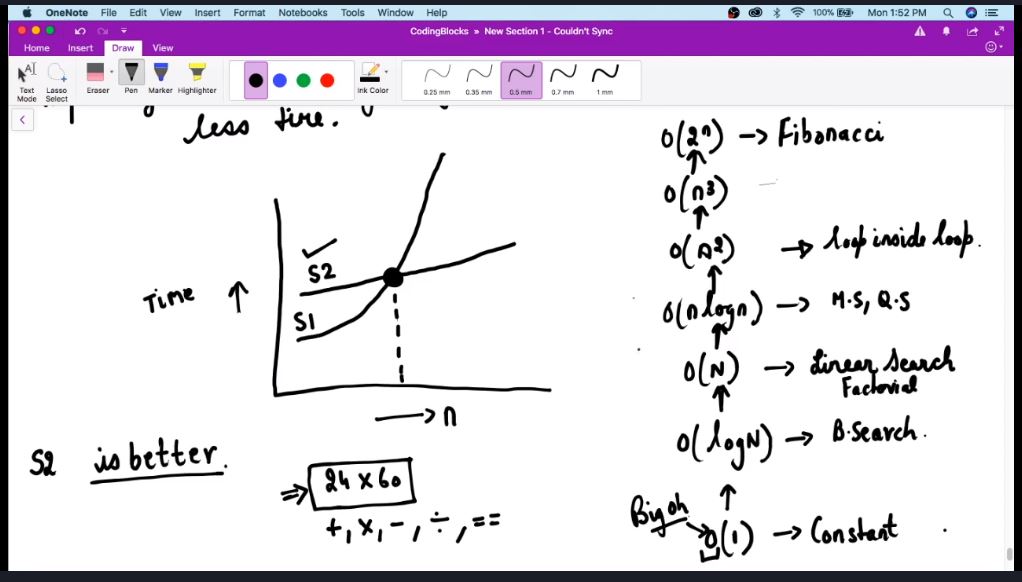 OneNote File Edit View Insert Format Notebooks Tools Window Help
100% Mon 1:52 PM
CodingBlocks » New Section 1 - Couldn't Sync
Home Insert Draw View
Text Mode
Lasso Select
Eraser
Pen
Marker
Highlighter
Ink Color
0.25 mm
0.35 mm
0.5 mm
0.7 mm
1 mm
less time.
Time ↑
S2
S1
→ n
S2 is better.
⇒ 24 x 60
+, x, -, ÷, ==
O(2ⁿ) → Fibonacci
O(n³)
O(n²) → loop inside loop.
O(n logn) → M.S, Q.S
O(N) → Linear Search
Factorial
O(logN) → B.Search.
Big oh
O(1) → Constant